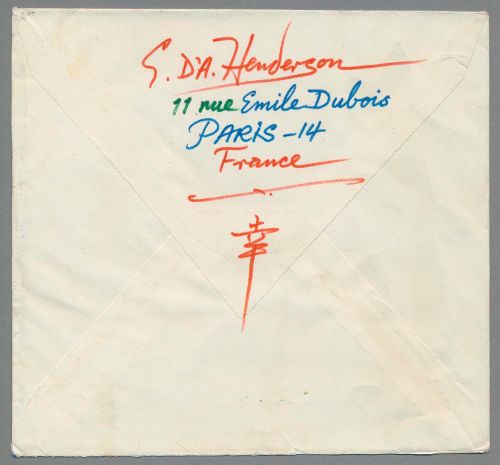 G. D'A. Henderson
11 rue Emile Dubois
PARIS-14
France
幸